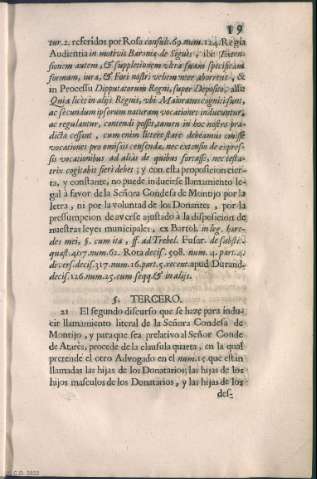 19
tur.2. referidos por Rosa consult.69.num.124. Regia
Audientia in motivis Baronię de Sigués, ibi: Exten-
sionem autem, & suppletionem vltra suam specificam
formam, iura, & Fori nostri vehementer aborrent, &
in Processu Dipputatorum Regni, super Deposito; alsit
Quia licet in alijs Regnis, vbi Maioratus cogniti sunt,
ac secundum ipsorum naturam vocationes inducuntur,
ac regulantur, contendi posset, tamen in hoc nostro præ-
dicta cessant, cum enim littere stare debeamus omisse
vocationes pro omissis censendæ, nec extensio de expres-
sis vocationibus ad alias de quibus forsasse, nec testa-
tris cogitabit fieri debet; y con esta proposicion cier-
ta, y constante, no puede inducirse llamamiento le-
gal à favor de la Señora Condesa de Montijo por la
letra, ni por la voluntad de los Donantes, por la
pressumpcion de averse ajustado à la disposicion de
nuestras leyes municipales, ex Bartol. in leg. hæres-
des mei, §. cum ita, ff. ad Trebel. Fusar. de substit.
quæst.417.num.62. Rota decis. 508. num. 4. part. 4.
divers. decis.317.num.16.part.5. recent. apud Durand.
decis.126.num.25.cum seqq. & in alijs.
§. TERCERO.
21 El segundo discurso que se haze para indu-
cir llamamiento literal de la Señora Condesa de
Montijo, y para que sea prelativo al Señor Conde
de Atarès, procede de la clausula quarta, en la qual
pretende el otro Advogado en el num.15. que están
llamadas las hijas de los Donatarios; las hijas de los
hijos masculos de los Donatarios, y las hijas de los
des-